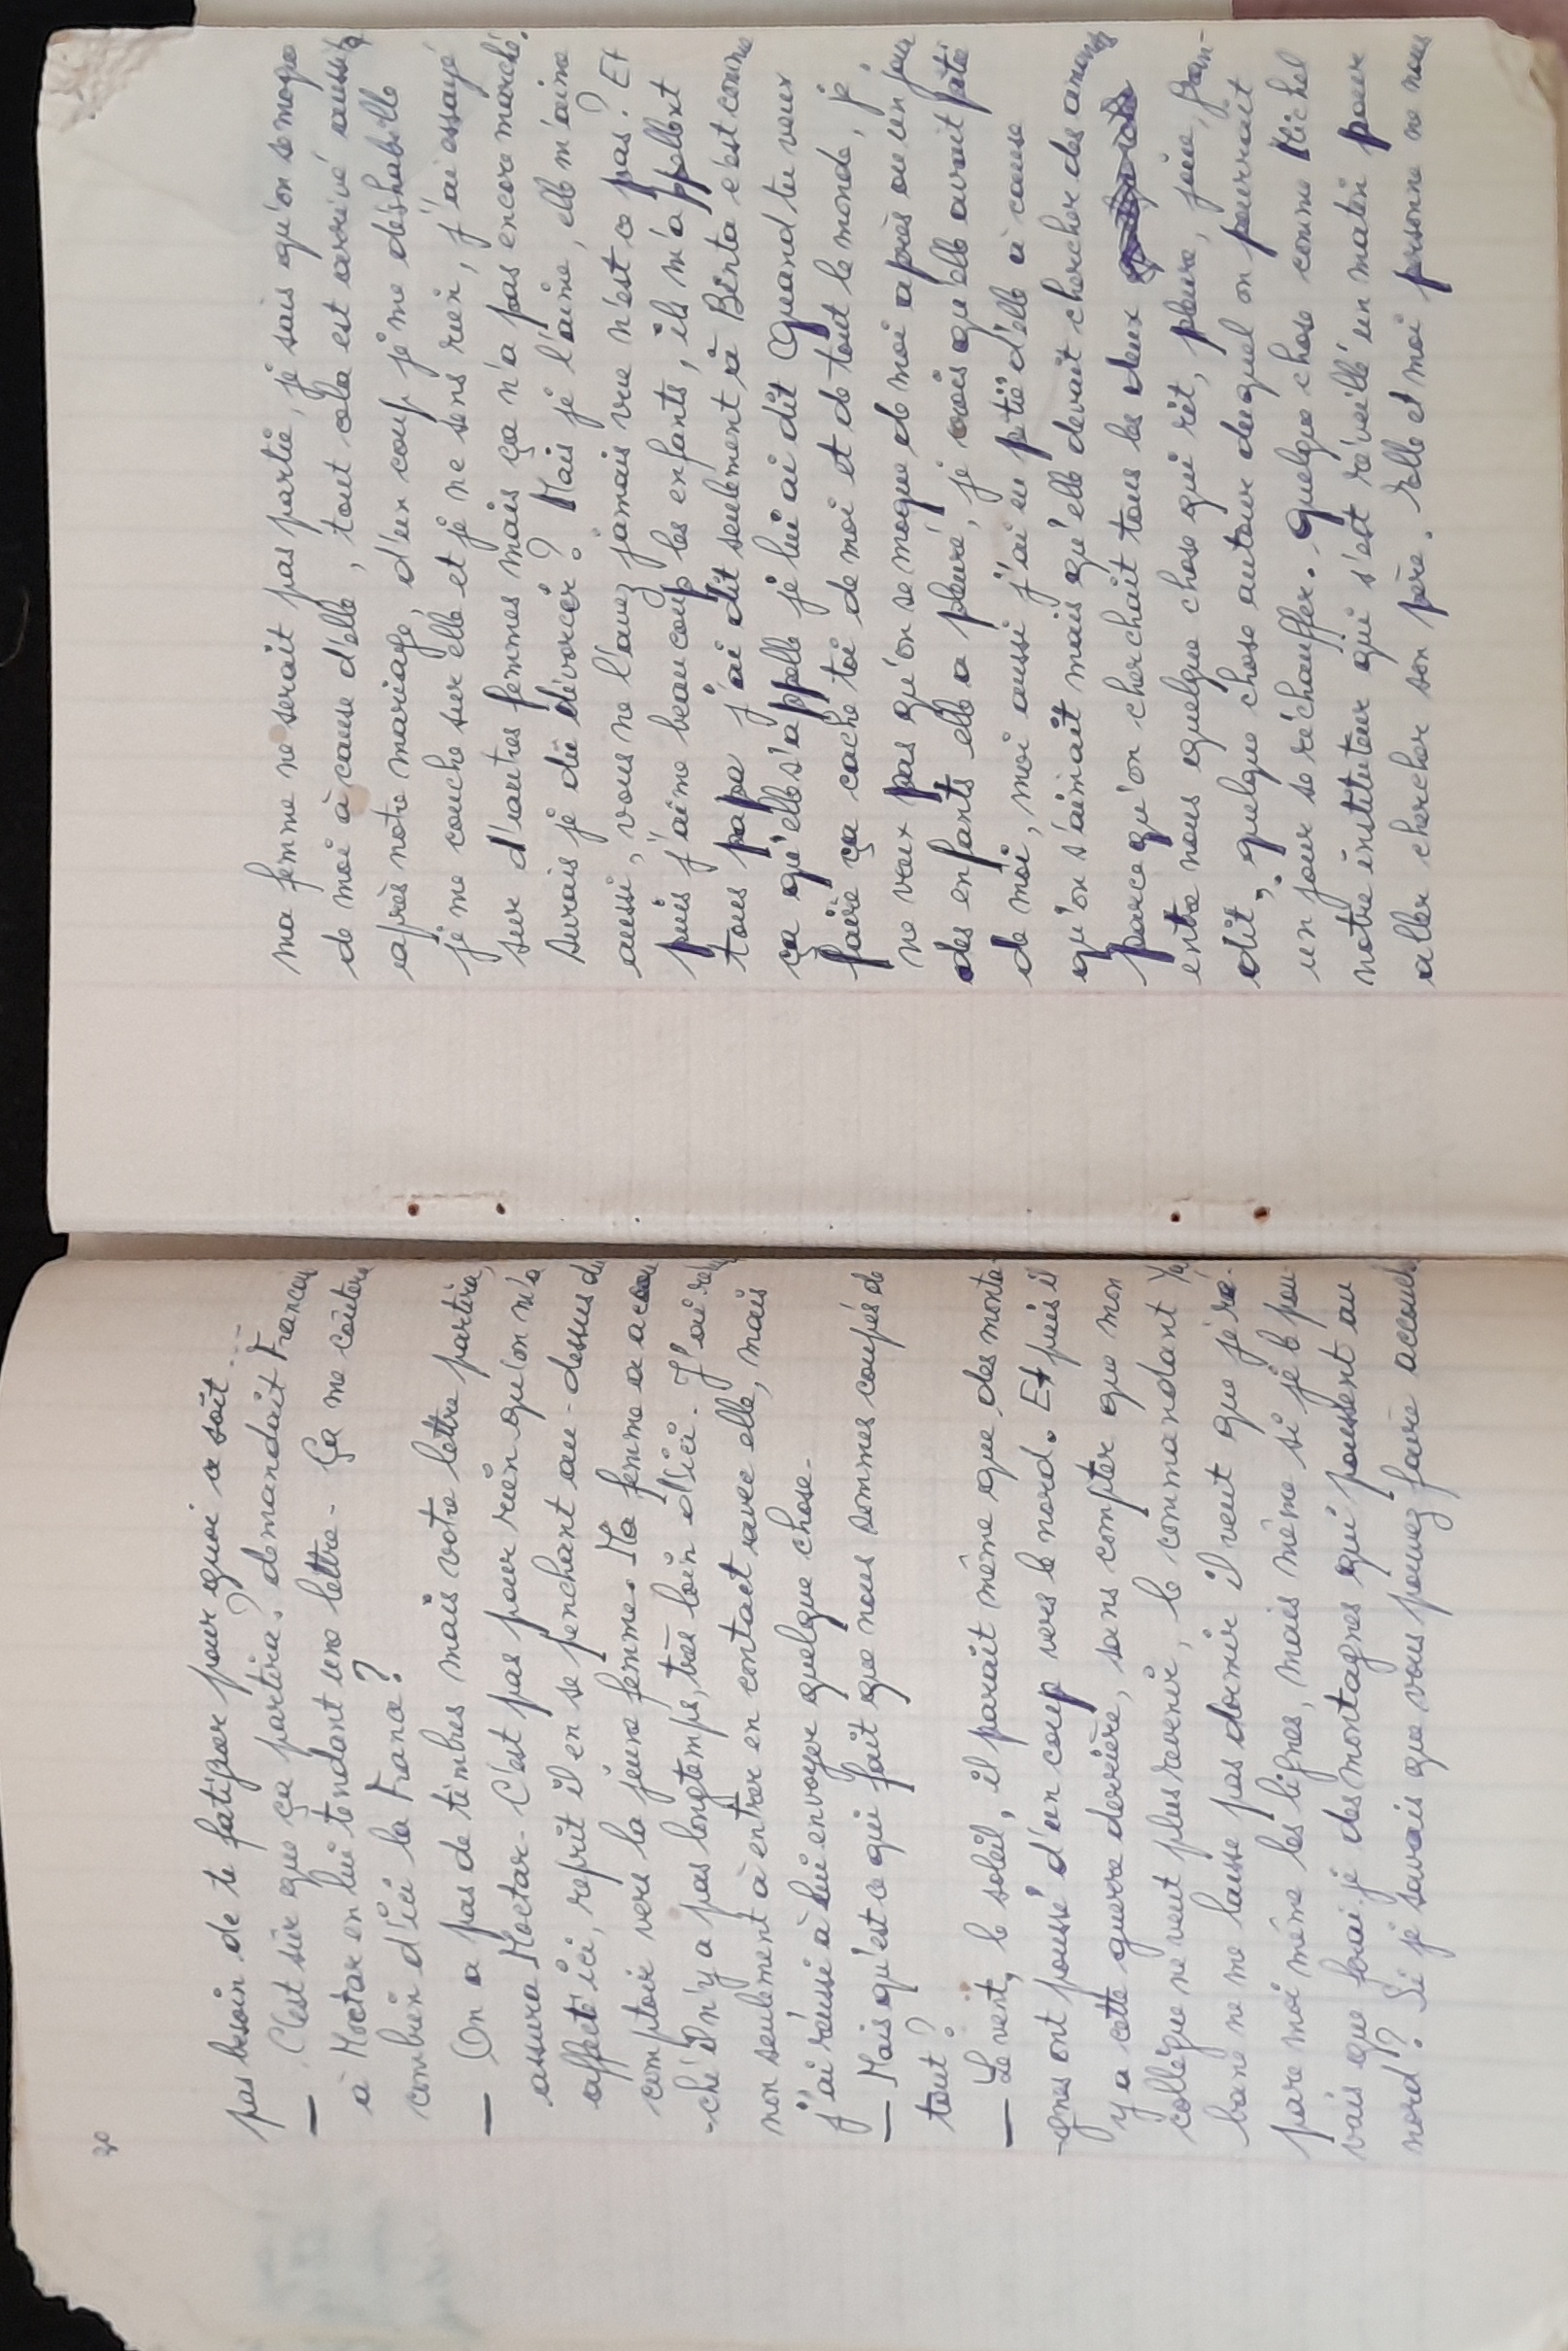 30
pas besoin de te fatiguer pour quoi ce soit ...
— C'est sûr que ça partira? demandait Francou
à Moctar en lui tendant une lettre - Ça me coûtera
combien d'ici la France?
— On a pas de timbres mais votre lettre partira,
assura Moctar - C'est pas pour rien qu'on m'a
affecté ici, reprit il en se penchant au-dessus du
comptoir vers la jeune femme. Ma femme a accou
-ché il n'y a pas longtemps, très loin d'ici. J'ai réu
non seulement à entrer en contact avec elle, mais
j'ai réussi à lui envoyer quelque chose -
— Mais qu'est ce qui fait que nous sommes coupés de
tout?
— Le vent, le soleil, il parait même que des monta-
-gnes ont poussé d'un coup vers le nord. Et puis il
y a cette guerre derrière, sans compter que mon
collègue ne veut plus revenir, le commandant Ya
bane ne me laisse pas dormir il veut que je ré-
pare moi même les lignes, mais même si je le pou
vais que ferai-je des montagnes qui poussent au
nord? Si je savais que vous pouvez faire accouch
ma femme ne serait pas partie, je sais qu'on se moque
de moi à cause d'elle, tout cela est arrivé aussitôt
après notre mariage, d'un coup je me déshabille
je me couche sur elle et je ne sens rien, j'ai essayé
sur d'autres femmes mais ça n'a pas encore marché.
Aurais je dû divorcer? Mais je l'aime, elle m'aime
aussi, vous ne l'avez jamais vue n'est ce pas? Et
puis j'aime beaucoup les enfants, ils m'appellent
tous papa j'ai dit seulement à Binta c'est comme
ça qu'elle s'appelle je lui ai dit Quand tu veux
faire ça cache toi de moi et de tout le monde, je
ne veux pas qu'on se moque de moi après ou un jour
des enfants elle a pleuré, je crois qu'elle avait pitié
de moi, moi aussi j'ai eu pitié d'elle à cause
qu'on s'aimait mais qu'elle devait chercher des amants
parce qu'on cherchait tous les deux
entre nous quelque chose qui rit, pleure, joue, gran-
dit, quelque chose autour duquel on pourrait
un jour se réchauffer. - Quelque chose comme Michel
notre instituteur qui s'est réveillé un matin pour
aller chercher son père. Elle et moi personne ne nous